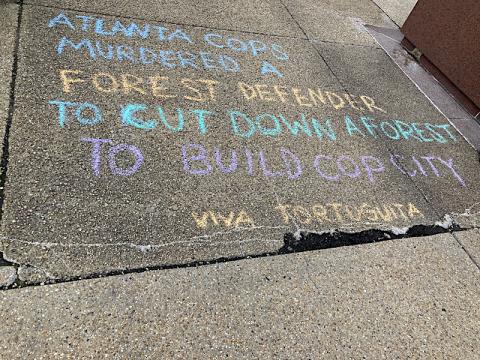 ATLANTA COPS
MURDERED A
FOREST DEFENDER
TO CUT DOWN A FOREST
TO BUILD COP CITY
VIVA TORTUGUITA